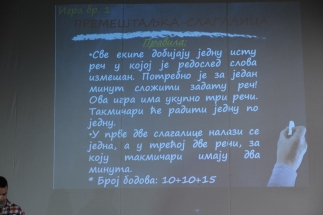 Игра бр. 1
ПРЕМЕШТАЉКА-СЛАГАЛИЦА
Правила:
•Све екипе добијају једну исту
реч у којој је редослед слова
измешан. Потребно је за један
минут сложити задату реч!
Ова игра има укупно три речи.
Такмичари ће радити једну по
једну.
•У прве две слагалице налази се
једна, а у трећој две речи, за
коју такмичари имају два
минута.
* Број бодова: 10+10+15